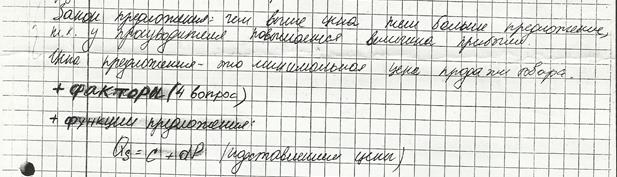 Закон предложения: чем выше цена тем больше предложение,
т.к. у производителя повышается величина прибыли
Цена предложения - это минимальная цена продажи товара.
+ факторы (4 вопрос)
+ функции предложения:
Qs = c + dP (подставляем цены)